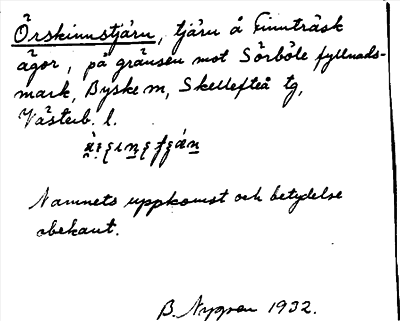 Örskinnstjärn, tjärn å Finnträsk
ägor, på gränsen mot Sörböle fyllnads-
mark, Byske sn, Skellefteå tg,
Västerb. l.
Namnets uppkomst och betydelse
obekant.
B. Nygren 1932.